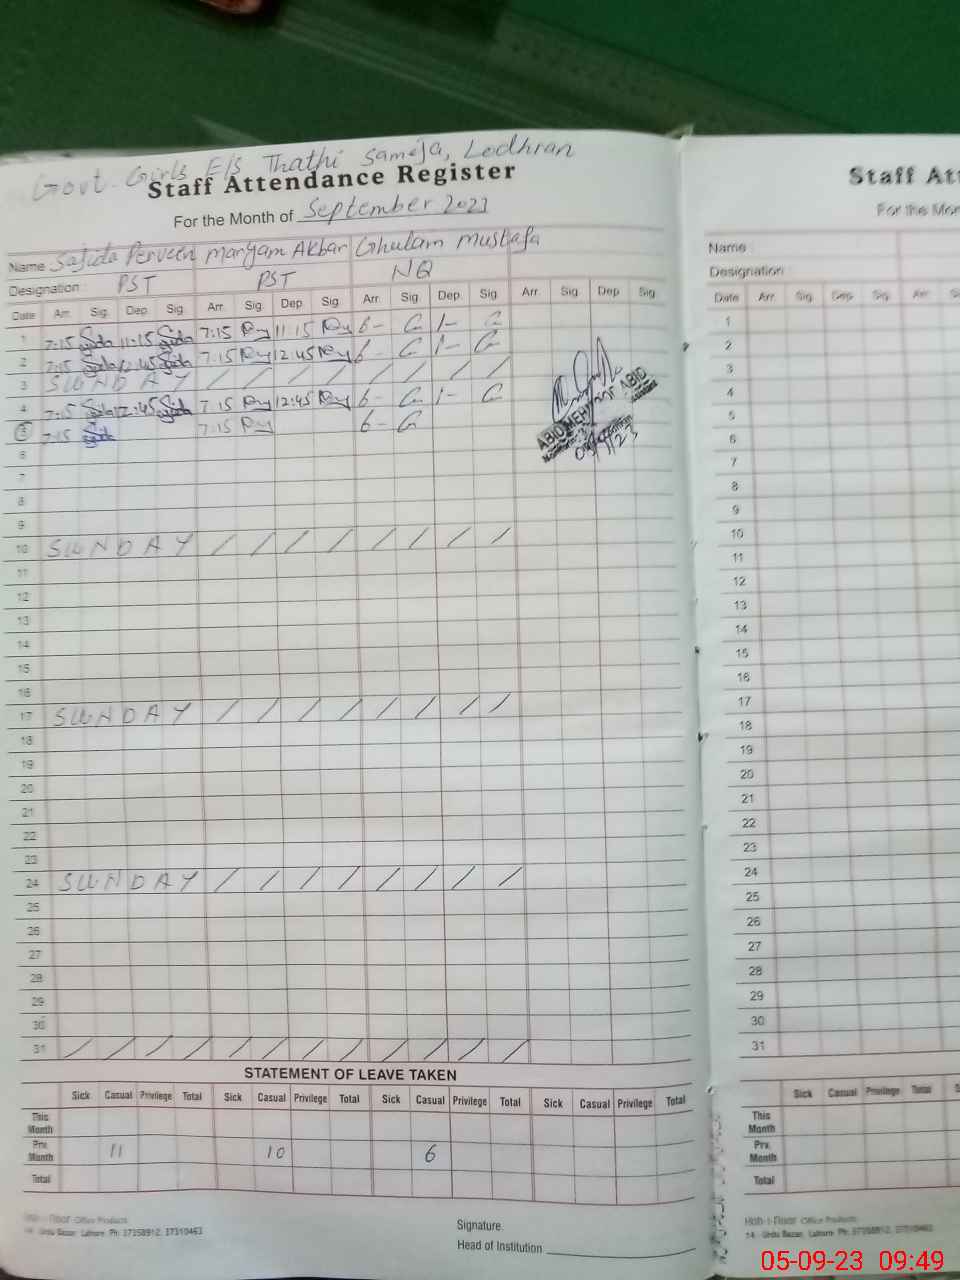 Govt. Girls E/S Thathi Sameja, Lodhran
Staff Attendance Register
For the Month of September 2023
Name Sajida Perveen Maryam Akbar Ghulam Mustafa
Designation : PST PST NQ
Date Arr. Sig. Dep. Sig. Arr. Sig. Dep. Sig. Arr. Sig. Dep. Sig. Arr. Sig. Dep. Sig.
1 7:15 11:15 7:15 11:15 6- 1-
2 7:15 12:45 7:15 12:45 6- 1-
3 SUNDAY / / / / / / / /
4 7:15 12:45 7:15 12:45 6- 1-
5 7:15 7:15 6-
ABID
6
7
8
9
10 SUNDAY / / / / / / / /
11
12
13
14
15
16
17 SUNDAY / / / / / / / /
18
19
20
21
22
23
24 SUNDAY / / / / / / / /
25
26
27
28
29
30
31 / / / / / / / / / / / /
STATEMENT OF LEAVE TAKEN
Sick Casual Privilege Total Sick Casual Privilege Total Sick Casual Privilege Total Sick Casual Privilege Total
This Month
Prv. Month 11 10 6
Total
Office Products
14 Urdu Bazar, Lahore Ph: 37358912, 37310463
Signature.
Head of Institution
Staff Att
For the Mon
Name :
Designation :
Date Arr. Sig. Dep. Sig. Arr.
1
2
3
4
5
6
7
8
9
10
11
12
13
14
15
16
17
18
19
20
21
22
23
24
25
26
27
28
29
30
31
Sick Casual Privilege Total Sick
This Month
Prv. Month
Total
Office Products
14 Urdu Bazar, Lahore Ph: 37358912, 37310463
05-09-23 09:49